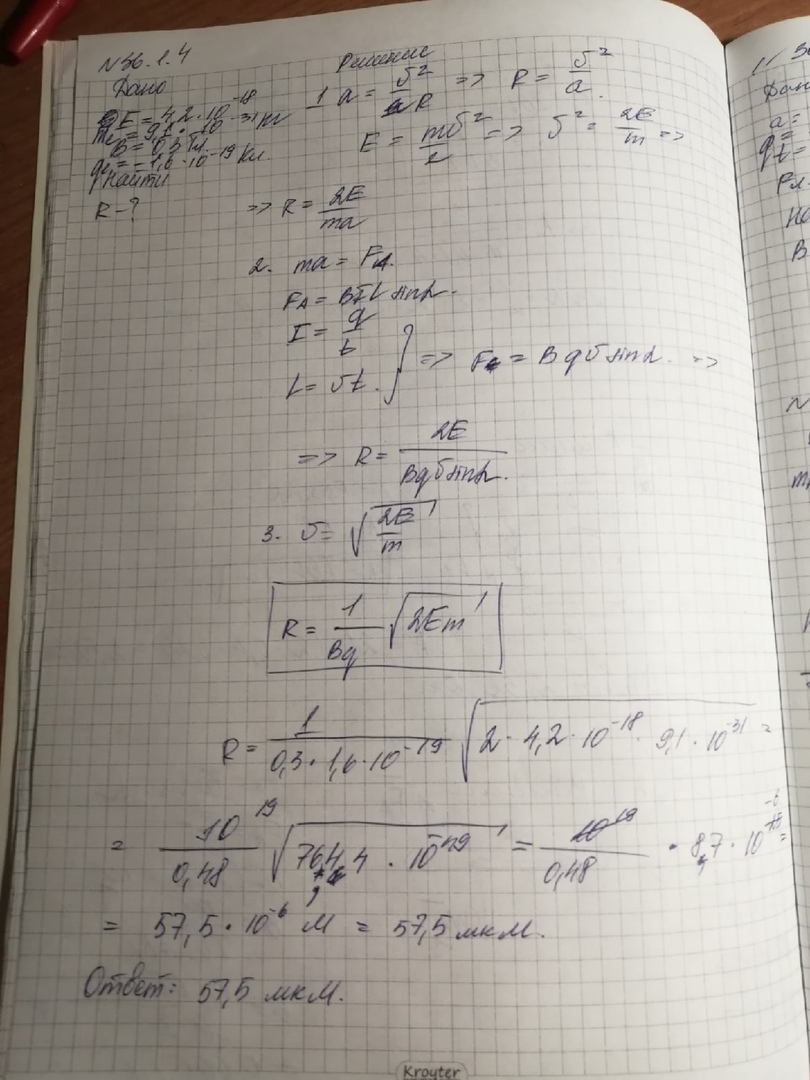 N 36.1.4
Дано
E = 4,2 · 10^-18
me = 9,1 · 10^-31 кг
B = 0,3 Тл
qe = -1,6 · 10^-19 Кл.
Найти
R - ?
Решение
1 a = υ²/R => R = υ²/a.
E = mυ²/2 => υ² = 2E/m =>
=> R = 2E/ma
2. ma = FA.
FA = BIL sinα.
I = q/t
L = υt. } => F = Bqυ sinα. =>
=> R = 2E/Bqυ sinα.
3. υ = √(2E/m)
R = 1/Bq √(2Em)
R = 1/(0,3 · 1,6 · 10^-19) √(2 · 4,2 · 10^-18 · 9,1 · 10^-31) =
= 10^19/0,48 √(76,44 · 10^-49) = 10^19/0,48 · 8,7 · 10 =
= 57,5 · 10^-6 М = 57,5 мкМ.
Ответ: 57,5 мкМ.
Kroyter
Дано
a =
q =
t =
N